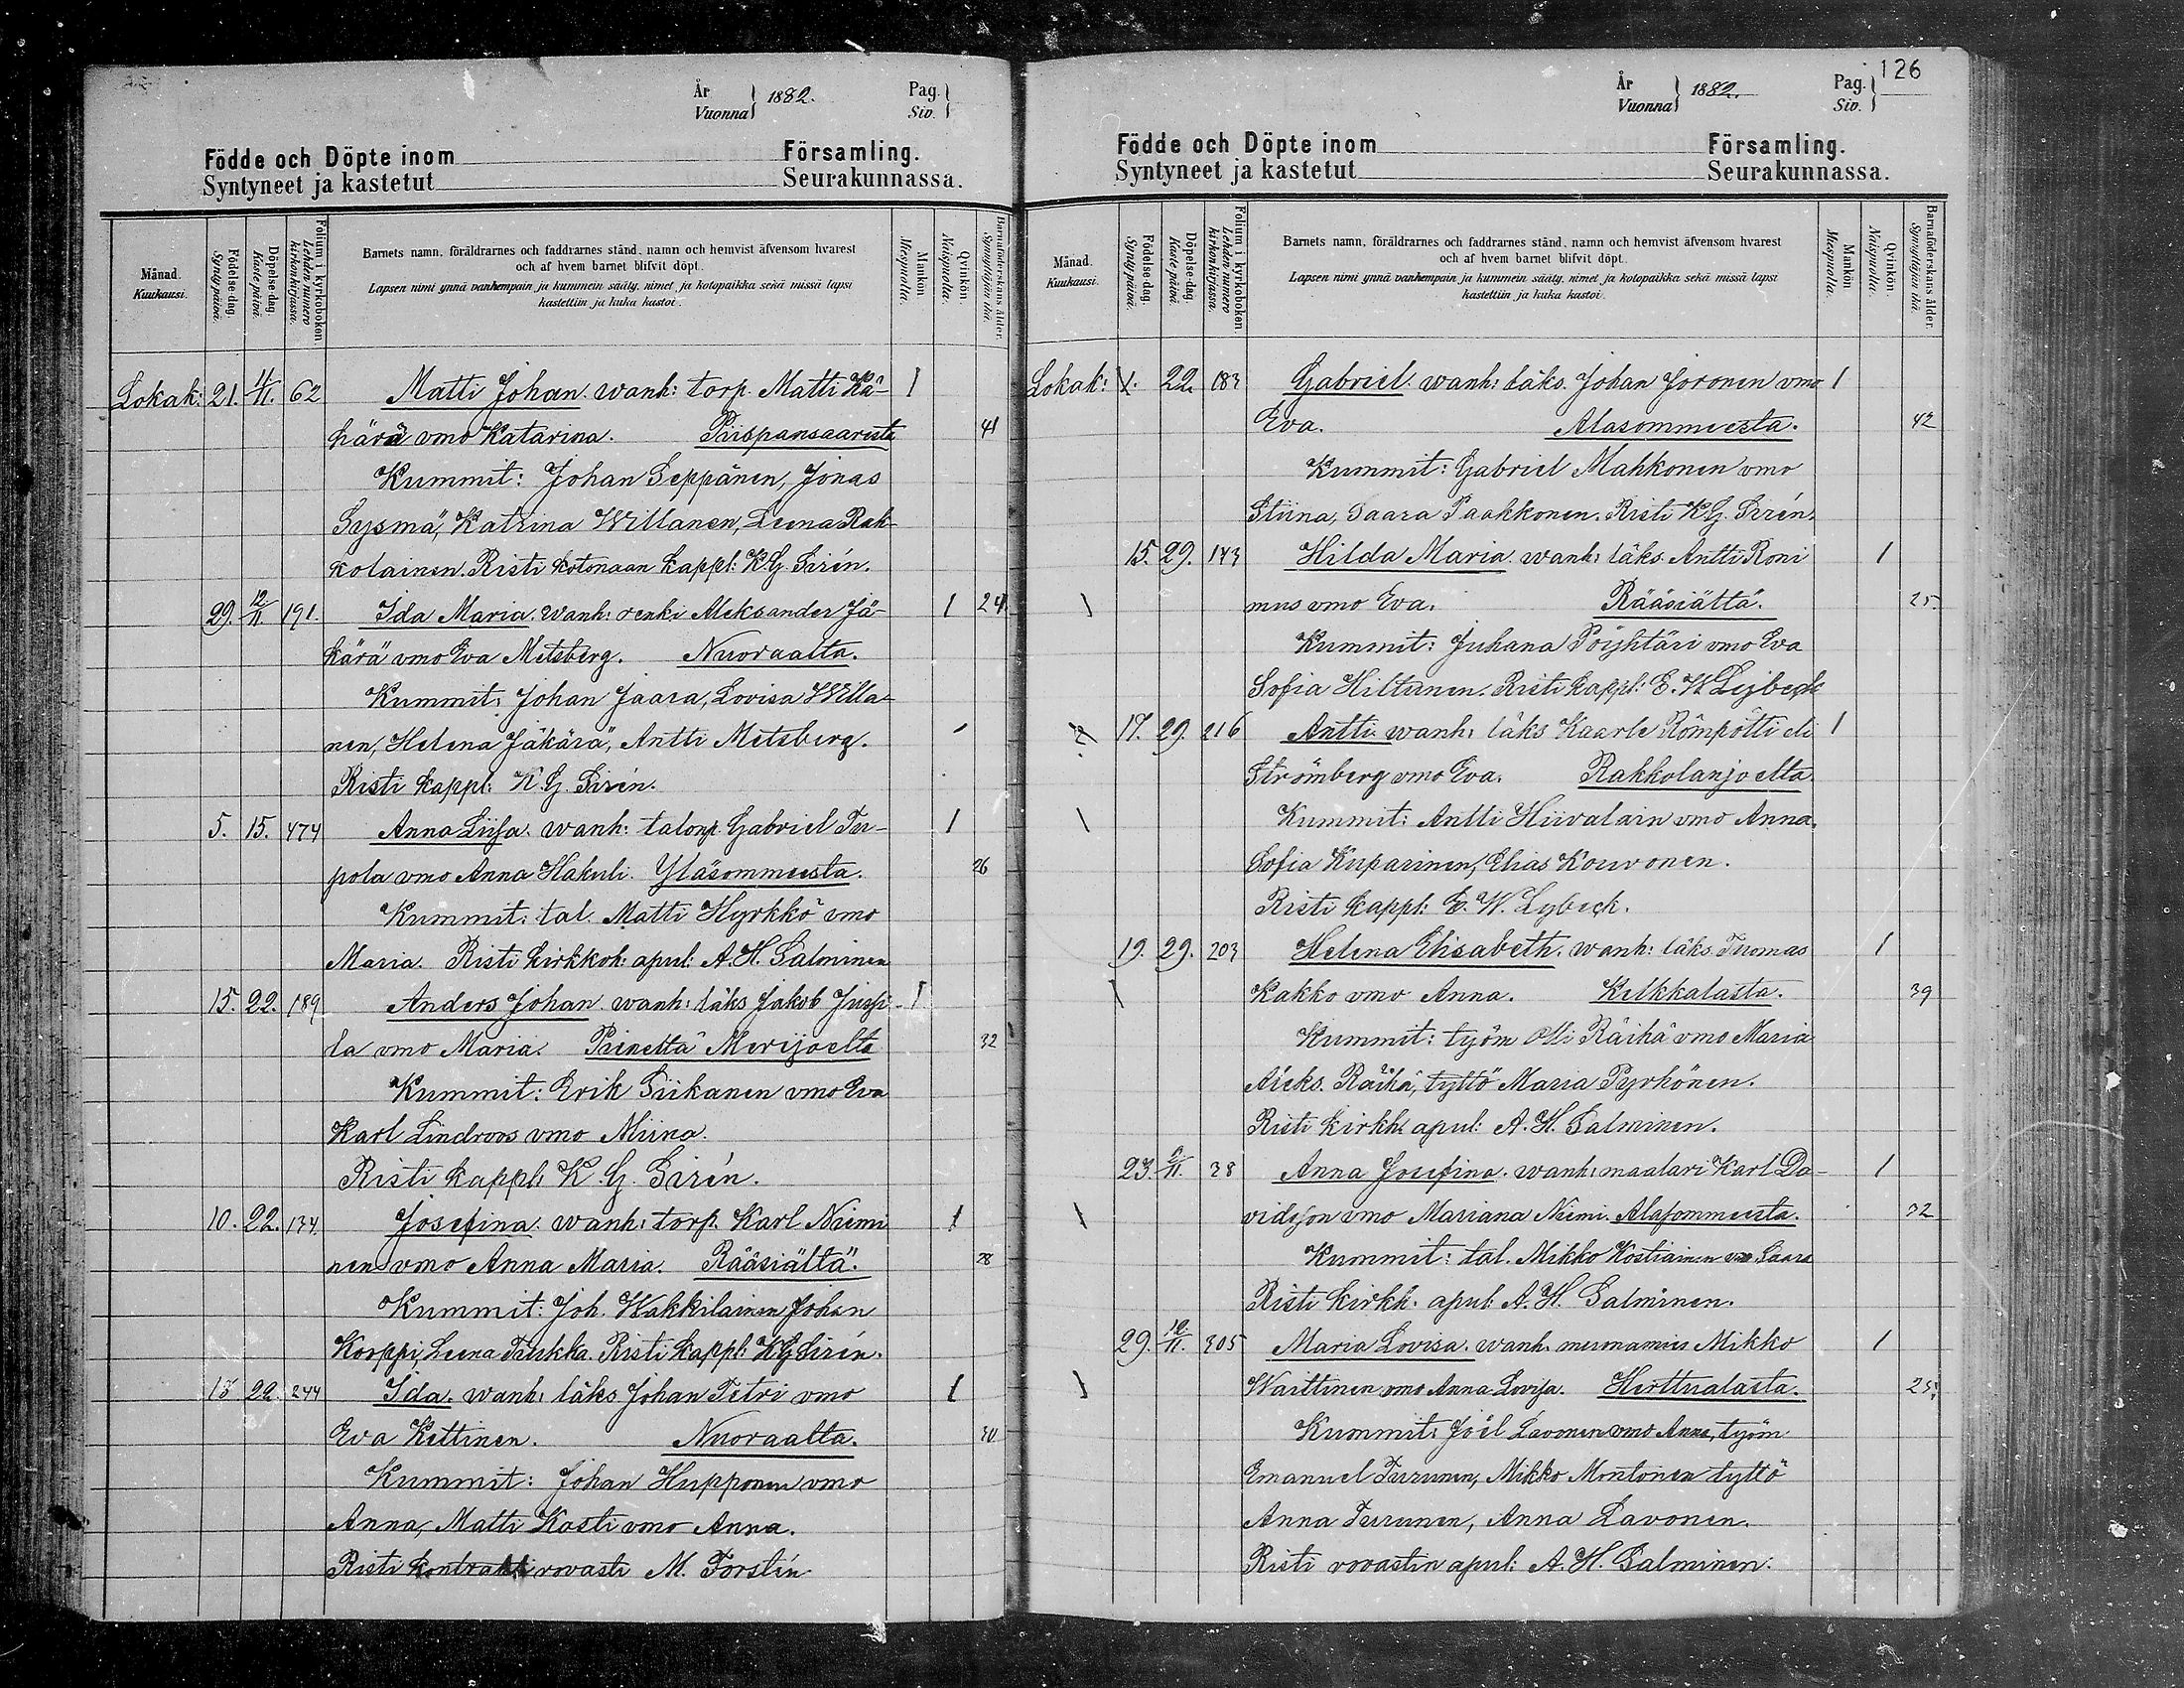 År
Vuonna } 1882.
Pag.
Siv. }
Födde och Döpte inom Församling.
Syntyneet ja kastetut Seurakunnassa.
Månad.
Kuukausi.
Födelse-dag.
Synty päivä.
Döpelse-dag.
Kaste päivä.
Folium i kyrkoboken
Lehden numero
kirkonkirjassa.
Barnets namn, föräldrarnes och faddrarnes stånd, namn och hemvist äfvensom hvarest
och af hvem barnet blifvit döpt.
Lapsen nimi ynnä vanhempain ja kummein sääty, nimet ja kotopaikka sekä missä lapsi
kastettiin ja kuka kastoi.
Mankön.
Miespuolta.
Qvinkön.
Naispuolta.
Barnaföderskans ålder.
Synnyttäjän ikä.
Lokak: 21. 4/11. 62 Matti Johan. wanh: torp. Matti Kä- 1
härä vmo Katarina. Piispansaaresta 41
Kummit: Johan Seppänen, Jonas
Sysmä, Katrina Willanen, Leena Rak-
kolainen. Risti kotonaan kappl: K.G. Sirén.
29. 12/11 191. Ida Maria. wanh: renki Aleksander Jä- 1 24.
kärä vmo Eva Metsberg. Nuoraalta.
Kummit: Johan Jaara, Lovisa Willa-
nen, Helena Jäkärä, Antti Metsberg.
Risti kappl: K.G. Sirén.
5. 15. 474 Anna Liisa. wanh: talonp. Gabriel Tu- 1
pola vmo Anna Hakuli. Yläsommeesta. 26
Kummit: tal. Matti Hyrkkö vmo
Maria. Risti kirkkoh: apul: A.H. Salminen
15. 22. 189 Anders Johan. wanh: läks Jakob Juusi- 1
la vmo Maria. Prinettä Merijoelta 32
Kummit: Erik Siikanen vmo Eva
Karl Lindroos vmo Miina.
Risti kappl: K.G. Sirén.
10. 22. 134. Josefina. wanh: torp. Karl Niemi 1
nen vmo Anna Maria. Rääsiältä. 28
Kummit: Joh. Wakkilainen Johan
Korppi, Leena Tuukka. Risti kappl: K.G. Sirén.
18 22. 244 Ida. wanh: läks Johan Petri vmo 1
Eva Kettinen. Nuoraalta. 30
Kummit: Johan Hupponen vmo
Anna, Matti Kosti vmo Anna.
Risti kontrahti rovasti M. Forstén
126
År
Vuonna } 1882.
Pag.
Siv. }
Födde och Döpte inom Församling.
Syntyneet ja kastetut Seurakunnassa.
Månad.
Kuukausi.
Födelse-dag.
Synty päivä.
Döpelse-dag.
Kaste päivä.
Folium i kyrkoboken.
Lehden numero
kirkonkirjassa.
Barnets namn, föräldrarnes och faddrarnes stånd, namn och hemvist äfvensom hvarest
och af hvem barnet blifvit döpt.
Lapsen nimi ynnä vanhempain ja kummein sääty, nimet ja kotopaikka sekä missä lapsi
kastettiin ja kuka kastoi.
Mankön.
Miespuolta.
Qvinkön.
Naispuolta.
Barnaföderskans ålder.
Synnyttäjän ikä.
Lokak: 1. 22 183 Gabriel. wanh: läks. Johan Joronen vmo 1
Eva. Alasommeesta. 42
Kummit: Gabriel Mahkonen vmo
Stiina, Saara Paakkonen. Risti K.G. Sirén.
15. 29. 143 Hilda Maria. wanh: läks. Antti Roni 1
mus vmo Eva. Rääsiältä. 25.
Kummit: Juhana Pöyhtäri vmo Eva
Sofia Hiltunen. Risti kappl: E.W. Lybeck
17. 29. 216 Antti. wanh: läks Kaarle Römpötti eli 1
Strömberg vmo Eva. Rakkolanjoelta
Kummit: Antti Hiivalain vmo Anna.
Sofia Kuparinen, Elias Kouvonen.
Risti kappl: E.W. Lybeck.
19. 29. 203 Helena Elisabeth. wanh: läks. Tuomas 1
Kakko vmo Anna. Kilkkalasta. 39
Kummit: työm Olli Räihä vmo Maria
Aleks. Räihä, tyttö Maria Pyrhönen.
Risti kirkkh: apul: A.H. Salminen.
23. 5/11. 38 Anna Josefina. wanh: maalari Karl Da- 1
vidsson vmo Mariana Niemi. Alasommeesta. 32
Kummit: tal. Mikko Kostiainen vmo Saara
Risti kirkh. apul: A.H. Salminen.
29. 12./11. 305 Maria Lovisa. wanh. muonamies Mikko 1
Warttinen vmo Anna Lovisa. Herttualasta. 25.
Kummit: Joel Lavonen vmo Anna, työm
Emanuel Turunen, Mikko Montonen tyttö
Anna Turunen, Anna Lavonen.
Risti rovastin apul: A.H. Salminen.